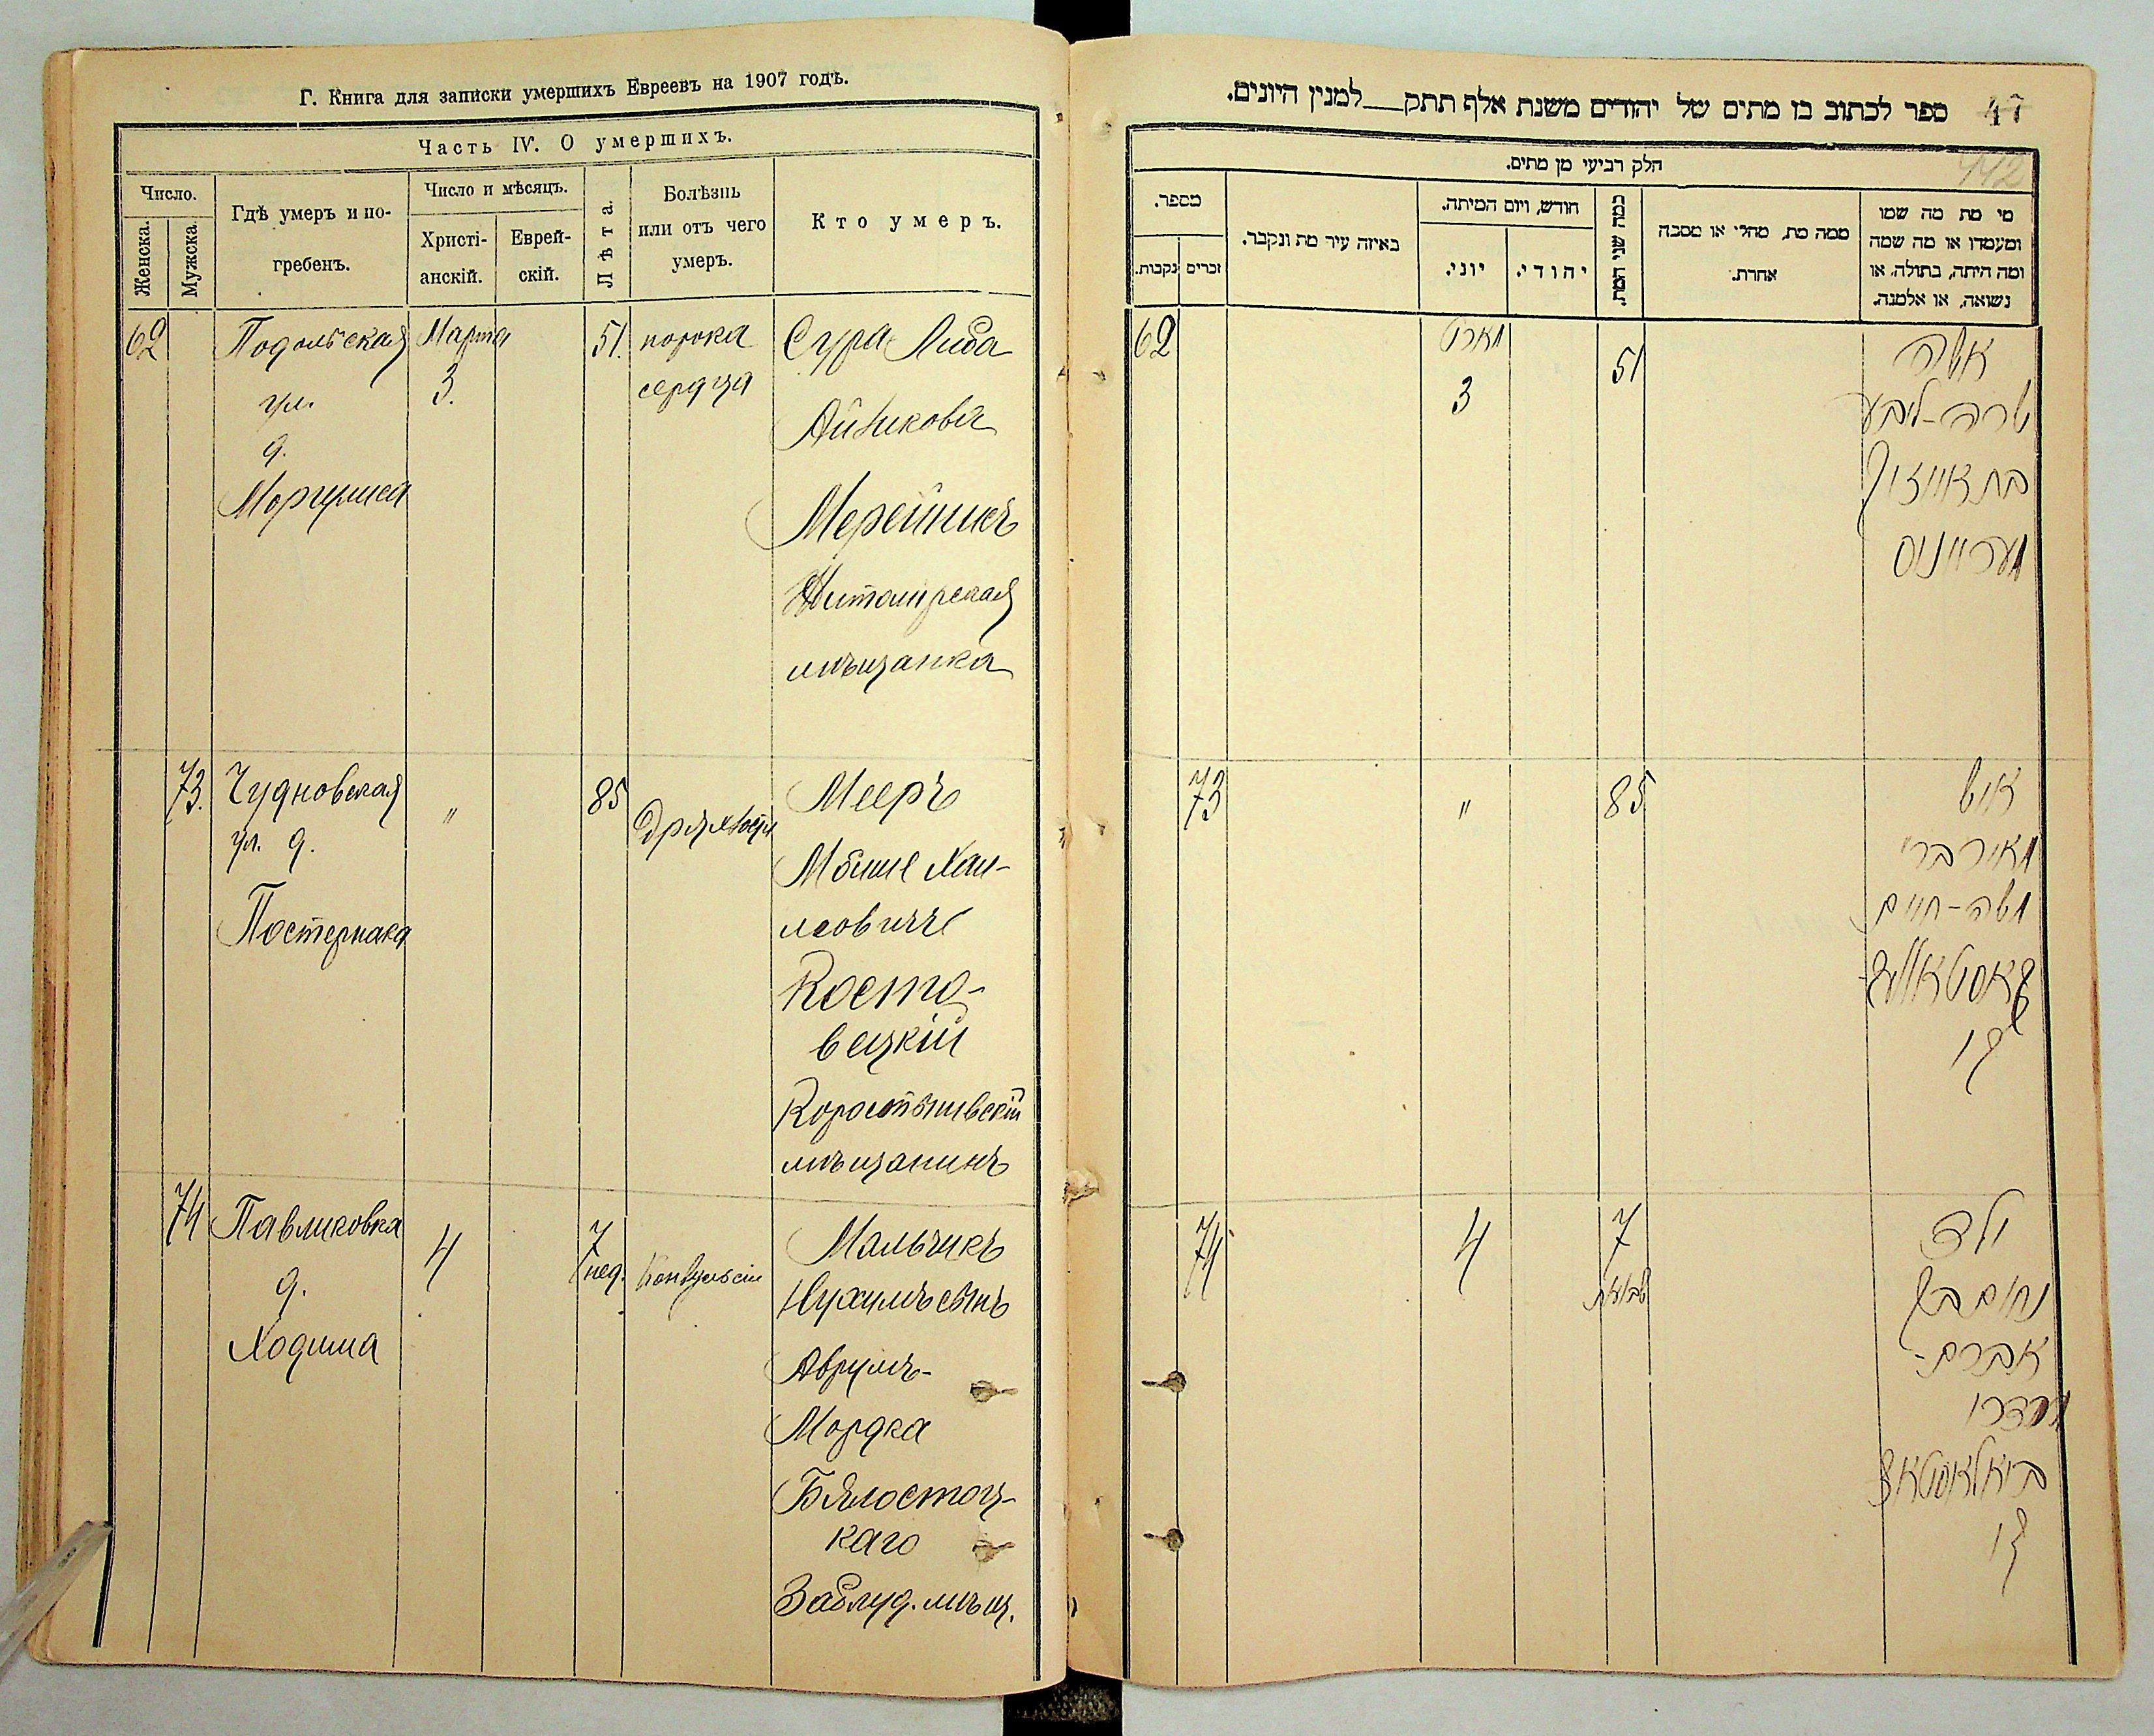 Г. Книга для записки умершихъ Евреевъ на 1907 годъ.
Часть IV. О умершихъ.
Число.
Женска.
Мужска.
Гдѣ умеръ и по-
гребенъ.
Число и мѣсяцъ.
Христі-
анскій.
Еврей-
скій.
Лѣта.
Болѣзнь
или отъ чего
умеръ.
Кто умеръ.
62
Подольская
ул.
д.
Марта
3.
51.
порока
сердца
Сура Либа
Айзикова
Мерейнисъ
Житомирская
мѣщанка
73.
Чудновская
ул. д.
Постернака
"
85
Дряхлости
Мееръ
Мошке Хаи-
мовичъ
Косто-
вецкій
Коростышевскій
мѣщанинъ
74
Павликовка
д.
Ходима
4
7
нед.
Конвульсіи
Мальчикъ
Нухимъ сынъ
Аврумъ-
Мордка
Бялостоц-
каго
Заблуд. мѣщ.
ספר לכתוב בו מתים של יהודים משנת אלף תתק למנין היונים.
47
442
חלק רביעי מן מתים.
מספר.
נקבות.
זכרים
באיזה עיר מת ונקבר.
חודש, ויום המיתה.
יוני.
יהודי.
כמה שני המת.
ממה מת, מחלי או מסבה
אחרת.
מי מת מה שמו
ומעמדו או מה שמה
ומה היתה, בתולה, או
נשואה, או אלמנה.
62
מארט
3
51
אשה
שרה-ליבע
בת אייזיק
מעריינוס
73
"
85
איש
מאיר ברי
משה-חיים
74
4
7
שבועות
ילד
נחום בן
אברם-
מרדכי
ביאלאסטאצ
קי